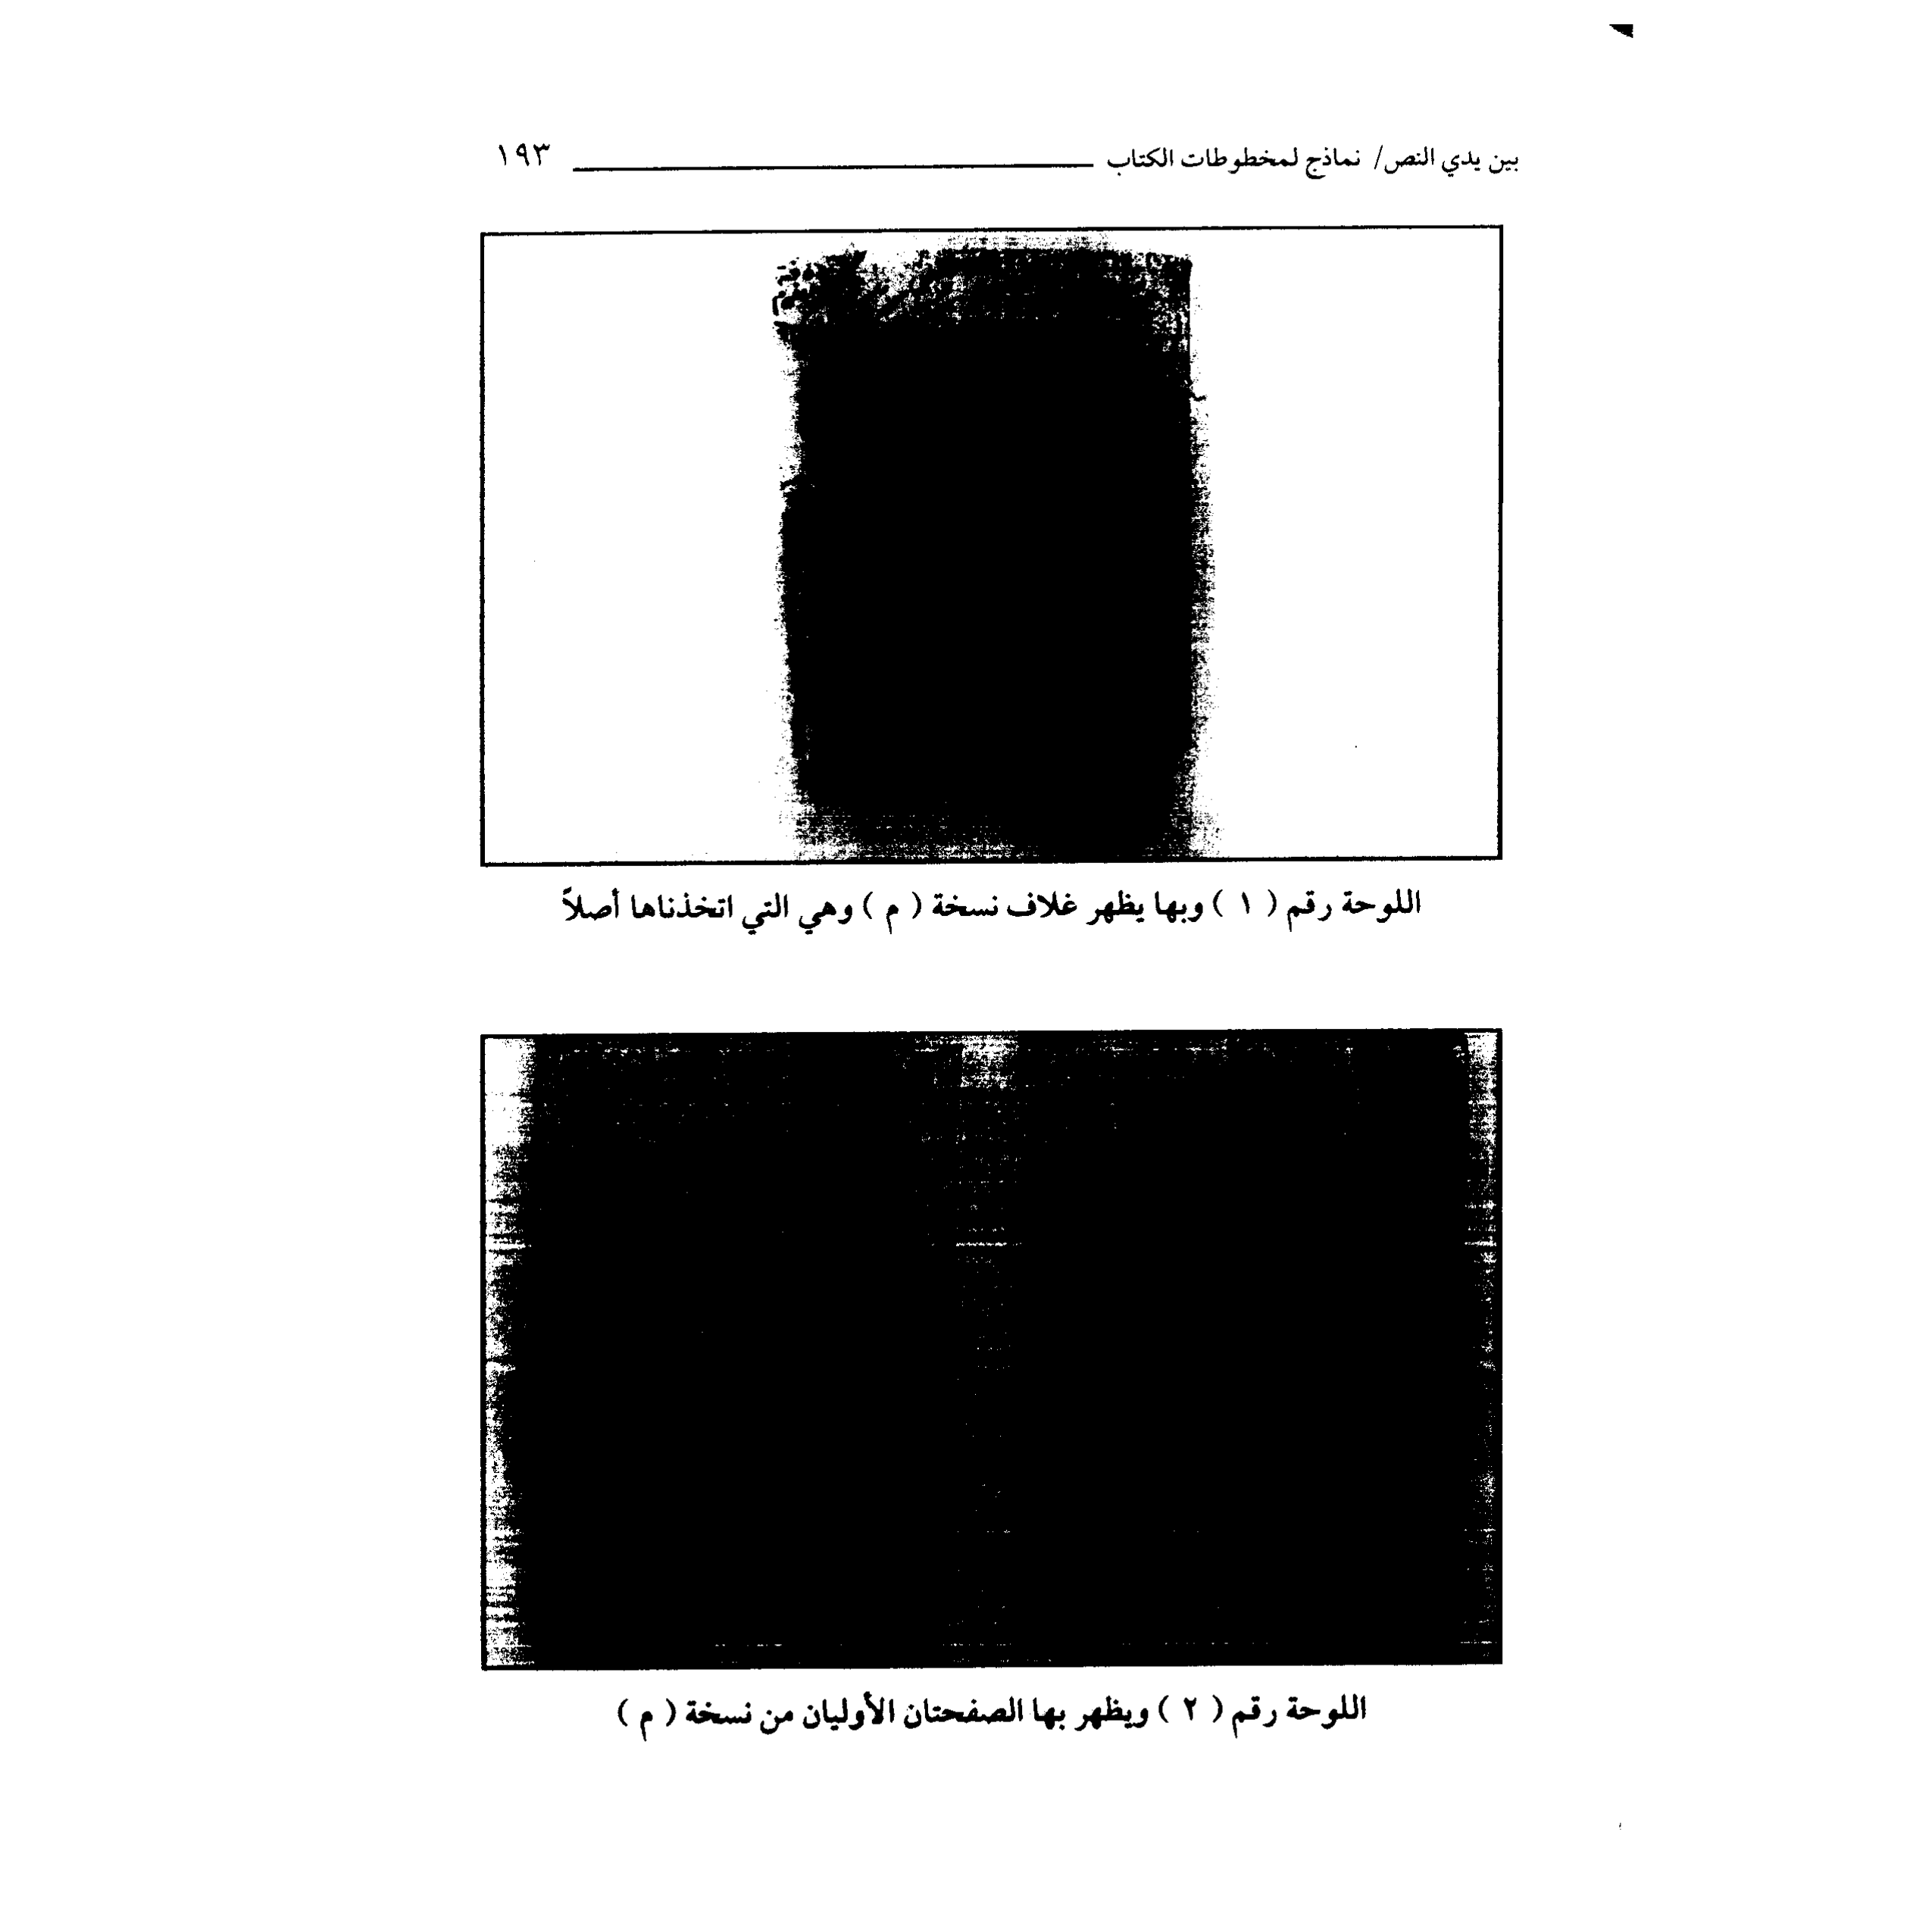 بين يدي النص/ نماذج لمخطوطات الكتاب ١٩٣
اللوحة رقم ( ١ ) وبها يظهر غلاف نسخة ( م ) وهي التي اتخذناها أصلاً
اللوحة رقم ( ٢ ) ويظهر بها الصفحتان الأوليان من نسخة ( م )